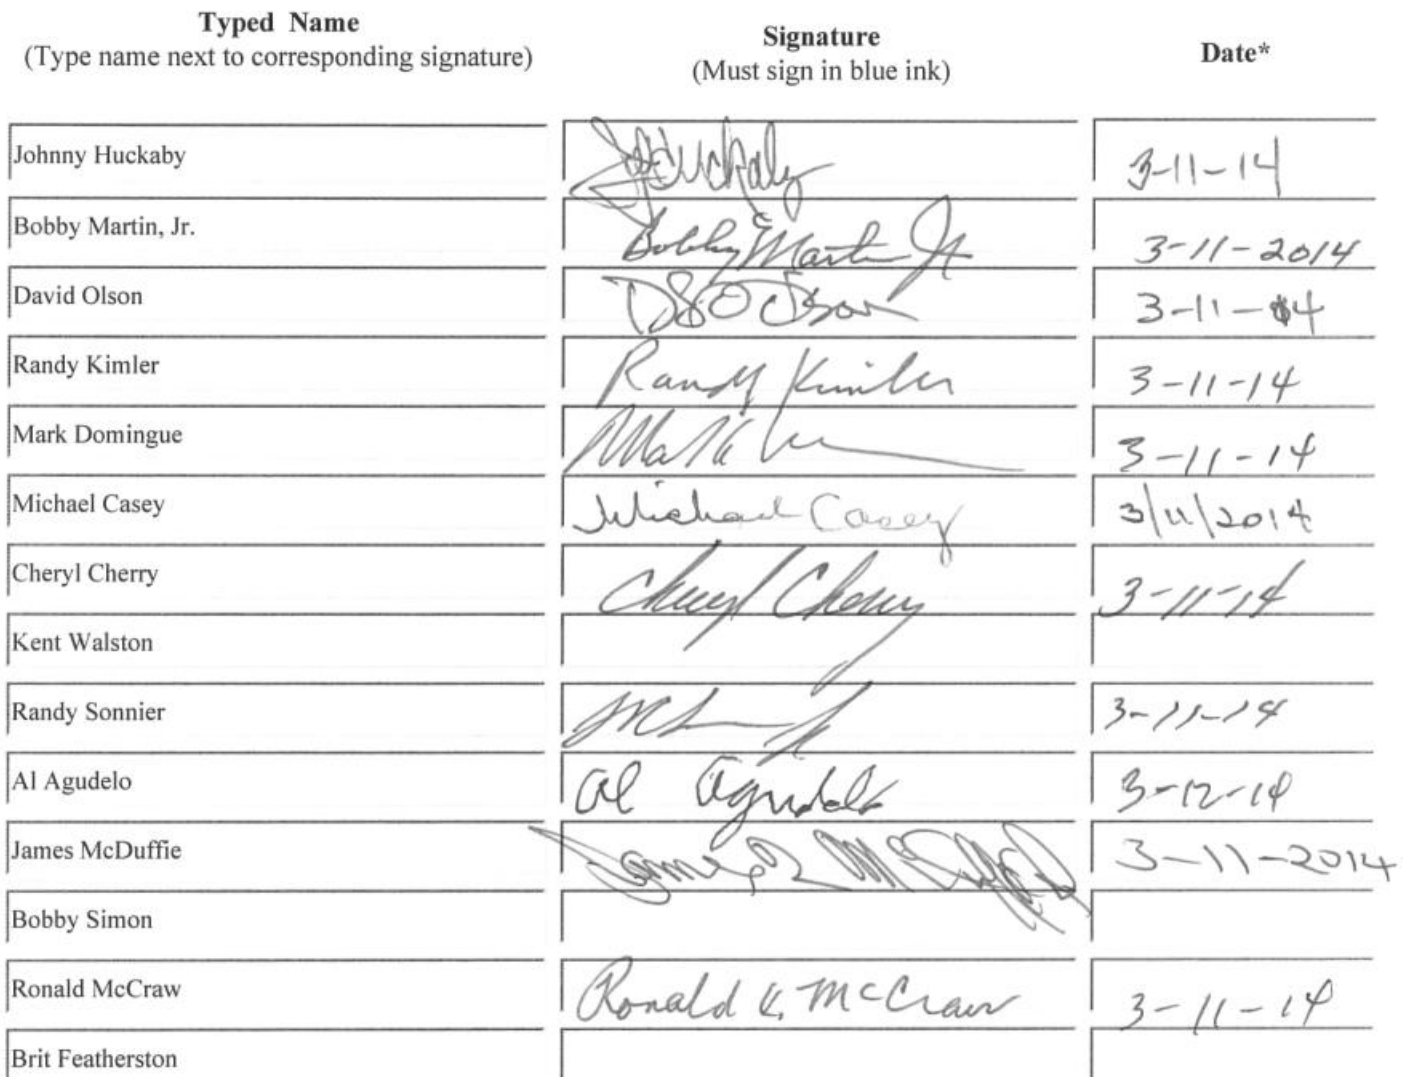 Typed Name Signature Date*
(Type name next to corresponding signature) (Must sign in blue ink)
Johnny Huckaby Huckaby 3-11-14
Bobby Martin, Jr. Bobby Martin Jr 3-11-2014
David Olson Olson 3-11-14
Randy Kimler Randy Kimler 3-11-14
Mark Domingue Mark 3-11-14
Michael Casey Michael Casey 3/11/2014
Cheryl Cherry Cheryl Cherry 3-11-14
Kent Walston
Randy Sonnier 3-11-14
Al Agudelo Al Agudelo 3-12-14
James McDuffie James McDuffie 3-11-2014
Bobby Simon
Ronald McCraw Ronald K. McCraw 3-11-14
Brit Featherston